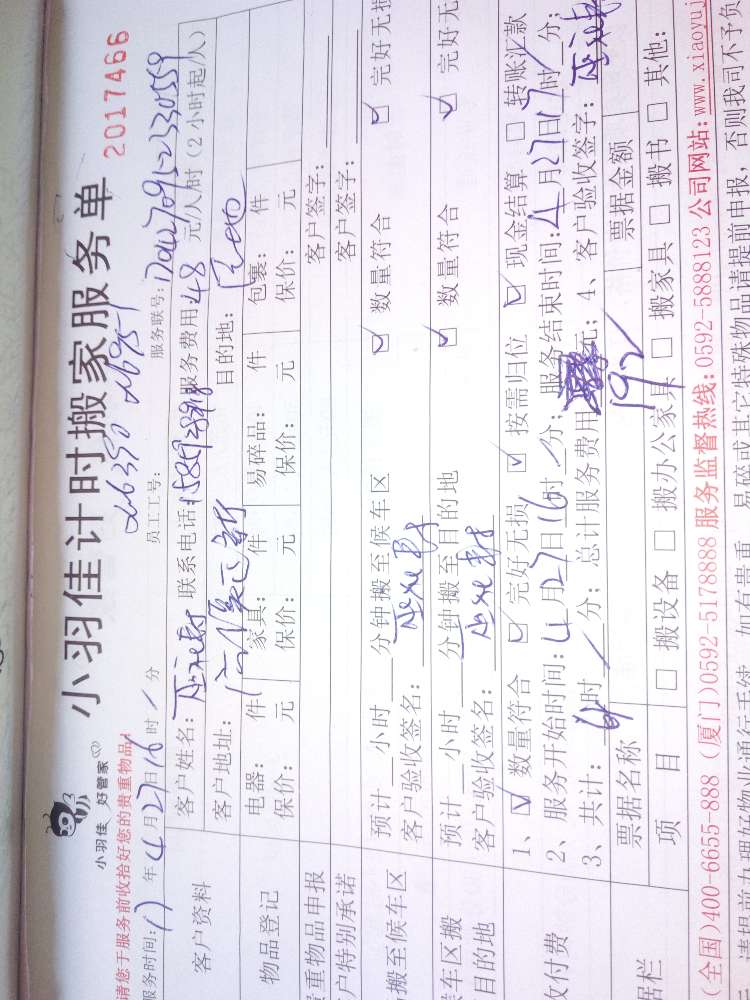 小羽佳计时搬家服务单
2017466
小羽佳 好管家
请您于服务前收拾好您的贵重物品!
员工工号: 服务联号:
服务时间: 17 年 4 月 27 日 16 时 / 分
客户资料
客户姓名: 联系电话 服务费用 48 元/人/时 (2 小时起/人)
客户地址: 目的地:
物品登记
电器: 件 家具: 件 易碎品: 件 包裹: 件
保价: 元 保价: 元 保价: 元 保价: 元
贵重物品申报 客户签字:
客户特别承诺 客户签字:
搬至候车区
预计 小时 分钟搬至候车区 ☑ 数量符合 ☑ 完好无损
客户验收签名:
候车区搬
目的地
预计 小时 分钟搬至目的地 ☑ 数量符合 ☑ 完好无
客户验收签名:
收付费
1、☑ 数量符合 ☑ 完好无损 ☑ 按需归位 ☑ 现金结算 □ 转账汇款
2、服务开始时间: 4 月 27 日 16 时 / 分; 服务结束时间: 4 月 27 日 17 时 / 分;
3、共计: 时 / 分; 总计服务费用 元; 4、客户验收签字:
192
票据名称 票据金额
据栏
项 目 □ 搬设备 □ 搬办公家具 □ 搬家具 □ 搬书 □ 其他:
(全国)400-6655-888 (厦门)0592-5178888 服务监督热线:0592-5888123 公司网站:www.xiaoyuj
请提前办理好物业通行手续,如有贵重、易碎或其它特殊物品请提前申报,否则我司不予负